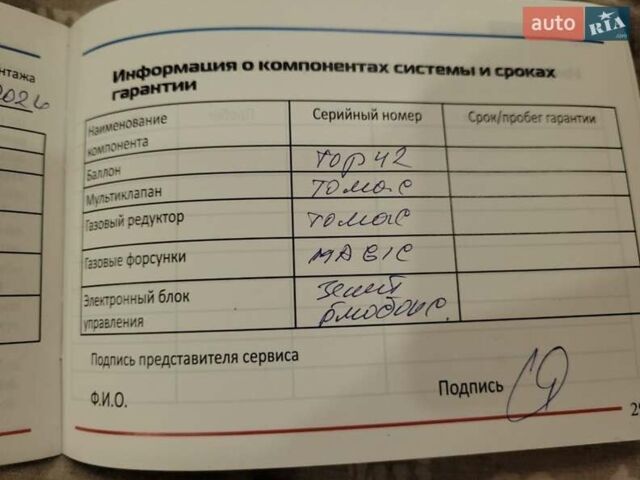 auto RIA.com
нтажа
2026
Информация о компонентах системы и сроках
гарантии
Наименование
компонента
Серийный номер
Срок/пробег гарантии
Баллон
тор 42
Мультиклапан
томас
Газовый редуктор
томас
Газовые форсунки
MAGIC
Электронный блок
управления
зенит
Подпись представителя сервиса
Ф.И.О.
Подпись